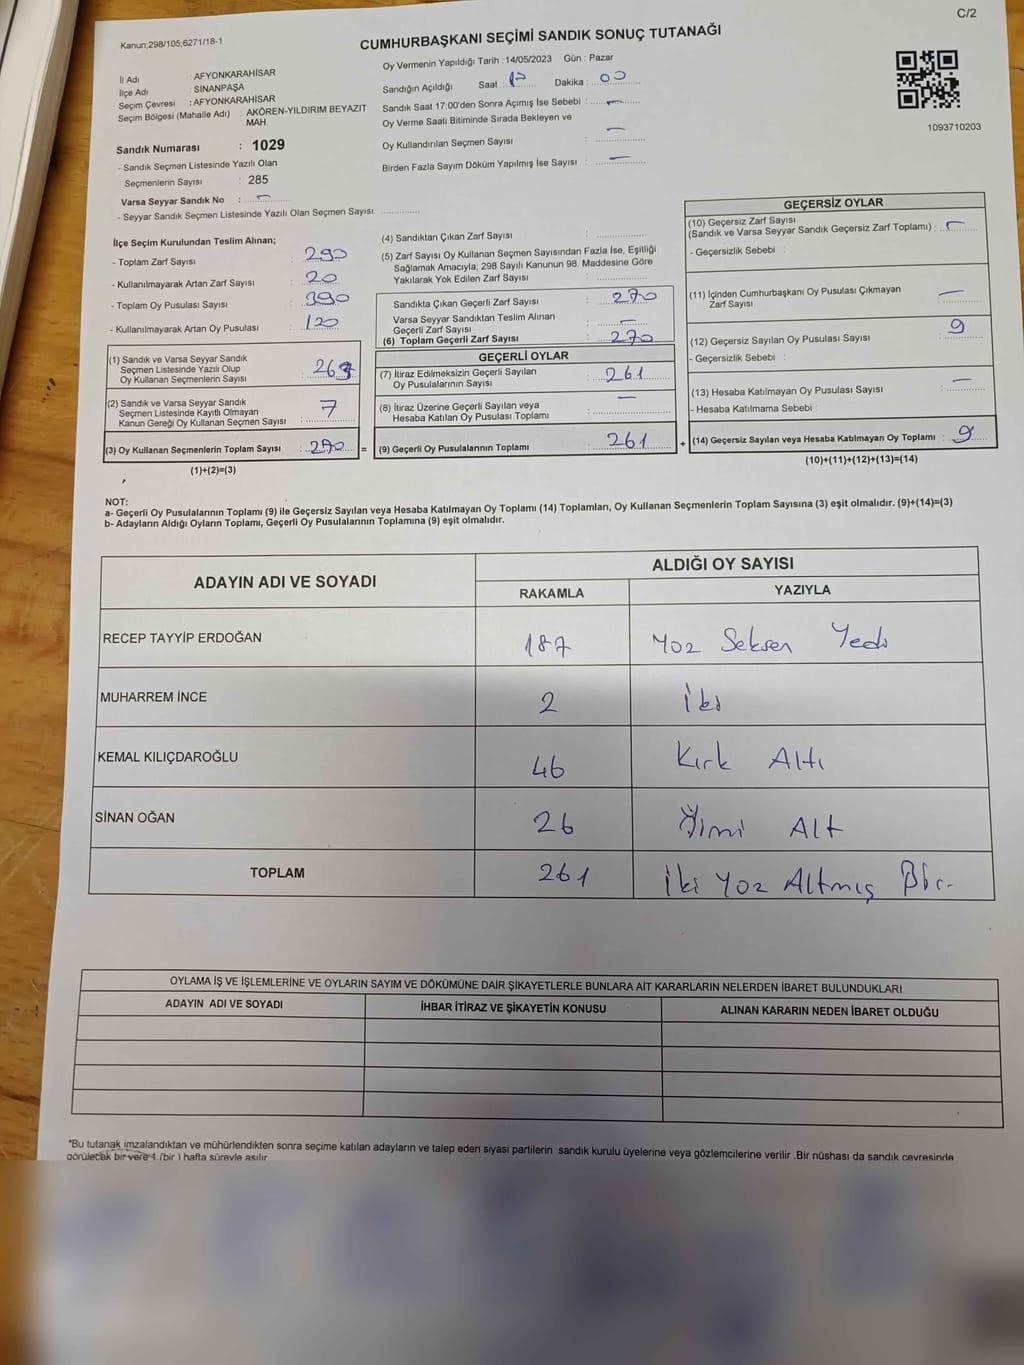 C/2
Kanun;298/105;6271/18-1
CUMHURBAŞKANI SEÇİMİ SANDIK SONUÇ TUTANAĞI
İl Adı : AFYONKARAHİSAR
İlçe Adı : SİNANPAŞA
Seçim Çevresi : AFYONKARAHİSAR
Seçim Bölgesi (Mahalle Adı) : AKÖREN-YILDIRIM BEYAZIT
MAH.
Sandık Numarası : 1029
- Sandık Seçmen Listesinde Yazılı Olan
Seçmenlerin Sayısı : 285
Varsa Seyyar Sandık No : —
- Seyyar Sandık Seçmen Listesinde Yazılı Olan Seçmen Sayısı:
Oy Vermenin Yapıldığı Tarih : 14/05/2023 Gün : Pazar
Sandığın Açıldığı Saat : Dakika : 00
Sandık Saat 17:00'den Sonra Açımış İse Sebebi : —
Oy Verme Saati Bitiminde Sırada Bekleyen ve
Oy Kullandırılan Seçmen Sayısı : —
Birden Fazla Sayım Döküm Yapılmış İse Sayısı : —
1093710203
İlçe Seçim Kurulundan Teslim Alınan;
- Toplam Zarf Sayısı : 290
- Kullanılmayarak Artan Zarf Sayısı : 20
- Toplam Oy Pusulası Sayısı : 390
- Kullanılmayarak Artan Oy Pusulası : 120
(1) Sandık ve Varsa Seyyar Sandık
Seçmen Listesinde Yazılı Olup
Oy Kullanan Seçmenlerin Sayısı : 263
(2) Sandık ve Varsa Seyyar Sandık
Seçmen Listesinde Kayıtlı Olmayan
Kanun Gereği Oy Kullanan Seçmen Sayısı : 7
(3) Oy Kullanan Seçmenlerin Toplam Sayısı : 270 =
(1)+(2)=(3)
(4) Sandıktan Çıkan Zarf Sayısı :
(5) Zarf Sayısı Oy Kullanan Seçmen Sayısından Fazla İse, Eşitliği
Sağlamak Amacıyla; 298 Sayılı Kanunun 98. Maddesine Göre
Yakılarak Yok Edilen Zarf Sayısı :
Sandıkta Çıkan Geçerli Zarf Sayısı : 270
Varsa Seyyar Sandıktan Teslim Alınan
Geçerli Zarf Sayısı : —
(6) Toplam Geçerli Zarf Sayısı : 270
GEÇERLİ OYLAR
(7) İtiraz Edilmeksizin Geçerli Sayılan
Oy Pusulalarının Sayısı : 261
(8) İtiraz Üzerine Geçerli Sayılan veya
Hesaba Katılan Oy Pusulası Toplamı : —
(9) Geçerli Oy Pusulalarının Toplamı : 261 +
GEÇERSİZ OYLAR
(10) Geçersiz Zarf Sayısı
(Sandık ve Varsa Seyyar Sandık Geçersiz Zarf Toplamı) : —
- Geçersizlik Sebebi :
(11) İçinden Cumhurbaşkanı Oy Pusulası Çıkmayan
Zarf Sayısı : —
(12) Geçersiz Sayılan Oy Pusulası Sayısı : 9
- Geçersizlik Sebebi :
(13) Hesaba Katılmayan Oy Pusulası Sayısı : —
- Hesaba Katılmama Sebebi :
(14) Geçersiz Sayılan veya Hesaba Katılmayan Oy Toplamı : 9
(10)+(11)+(12)+(13)=(14)
NOT:
a- Geçerli Oy Pusulası Toplamı (9) ile Geçersiz Sayılan veya Hesaba Katılmayan Oy Toplamı (14) Toplamları, Oy Kullanan Seçmenlerin Toplam Sayısına (3) eşit olmalıdır. (9)+(14)=(3)
b- Adayların Aldığı Oyların Toplamı, Geçerli Oy Pusulalarının Toplamına (9) eşit olmalıdır.
ADAYIN ADI VE SOYADI ALDIĞI OY SAYISI
RAKAMLA YAZIYLA
RECEP TAYYİP ERDOĞAN 187 Yüz Seksen Yedi
MUHARREM İNCE 2 İki
KEMAL KILIÇDAROĞLU 46 Kırk Altı
SİNAN OĞAN 26 Yimi Alt
TOPLAM 261 İki Yüz Altmış Bir
OYLAMA İŞ VE İŞLEMLERİNE VE OYLARIN SAYIM VE DÖKÜMÜNE DAİR ŞİKAYETLERLE BUNLARA AİT KARARLARIN NELERDEN İBARET BULUNDUKLARI
ADAYIN ADI VE SOYADI İHBAR İTİRAZ VE ŞİKAYETİN KONUSU ALINAN KARARIN NEDEN İBARET OLDUĞU
*Bu tutanak imzalandıktan ve mühürlendikten sonra seçime katılan adayların ve talep eden siyasi partilerin sandık kurulu üyelerine veya gözlemcilerine verilir .Bir nüshası da sandık çevresinde
görülecek bir yere 1 (bir) hafta süreyle asılır